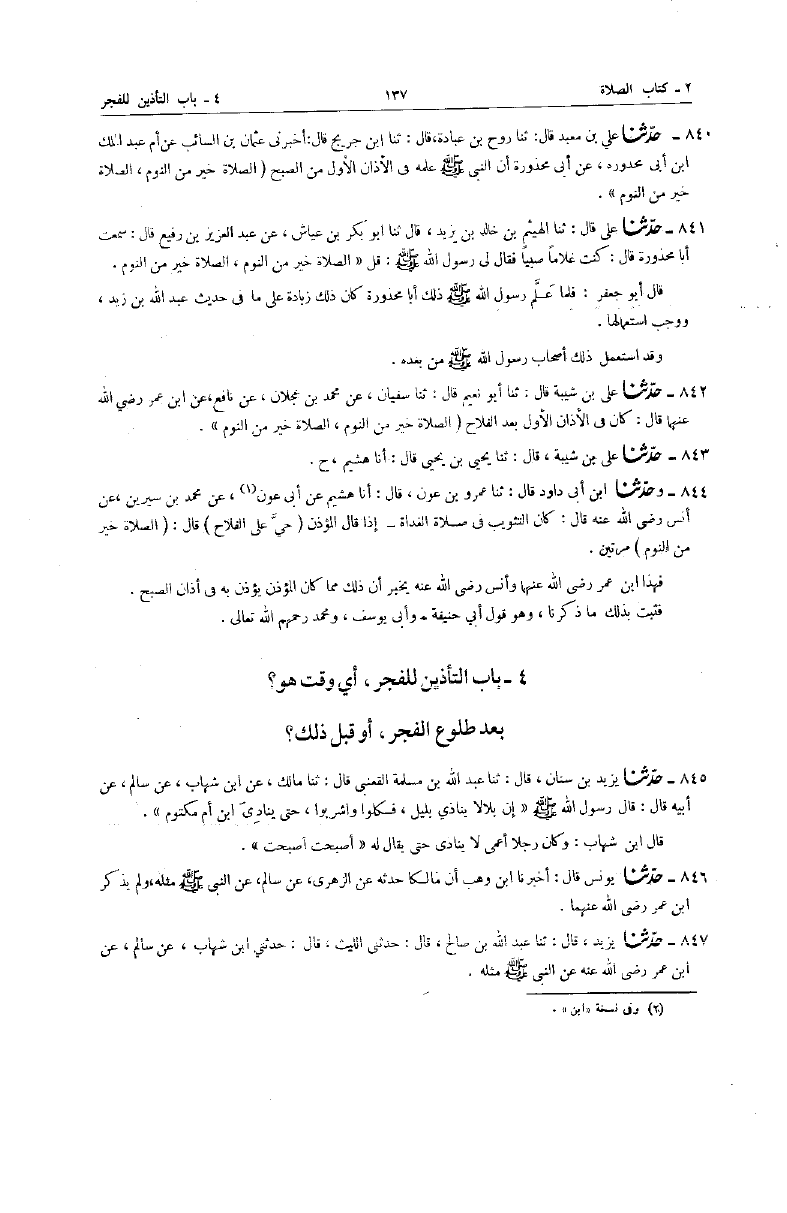 ٢ ـ كتاب الصلاة ١٣٧ ٤ ـ باب التأذين للفجر
٨٤٠ ـ حدّثنا علي بن معبد قال: ثنا روح بن عبادة، قال : ثنا ابن جريج قال: أخبرنى عثمان بن السائب عن أم عبد الملك
ابن أبى محذوره ، عن أبى محذورة أن النبى ﷺ علمه فى الأذان الأول من الصبح ( الصلاة خير من النوم ، الصلاة
خير من النوم » .
٨٤١ ـ حدّثنا على قال : ثنا الهيثم بن خالد بن يزيد ، قال ثنا ابو بكر بن عياش ، عن عبد العزيز بن رفيع قال : سمعت
أبا محذورة قال : كنت غلاماً صبياً فقال لى رسول الله ﷺ : قل « الصلاة خير من النوم ، الصلاة خير من النوم .
قال أبو جعفر : فلما عَلَّم رسول الله ﷺ ذلك أبا محذورة كان ذلك زيادة على ما فى حديث عبد الله بن زيد ،
ووجب استعمالها .
وقد استعمل ذلك أصحاب رسول الله ﷺ من بعده .
٨٤٢ ـ حدّثنا على بن شيبة قال : ثنا أبو نعيم قال : ثنا سفيان ، عن محمد بن عجلان ، عن نافع، عن ابن عمر رضي الله
عنهما قال : كان فى الأذان الأول بعد الفلاح ( الصلاة خير من النوم ، الصلاة خير من النوم » .
٨٤٣ ـ حدّثنا على بن شيبة ، قال : ثنا يحيى بن يحيى قال : أنا هشيم ، ح .
٨٤٤ ـ وحدّثنا ابن أبى داود قال : ثنا عمرو بن عون ، قال : أنا هشيم عن أبى عون(١) ، عن محمد بن سيرين ، عن
أنس رضى الله عنه قال : كان التثويب فى صلاة الغداة ـ إذا قال المؤذن ( حيَّ على الفلاح ) قال : ( الصلاة خير
من النوم ) مرتين .
فهذا ابن عمر رضى الله عنهما وأنس رضى الله عنه يخبر أن ذلك مما كان المؤذن يؤذن به فى أذان الصبح .
فثبت بذلك ما ذكرنا ، وهو قول أبي حنيفة ـ وأبى يوسف ، ومحمد رحمهم الله تعالى .
٤ ـ باب التأذين للفجر ، أي وقت هو؟
بعد طلوع الفجر ، أو قبل ذلك؟
٨٤٥ ـ حدّثنا يزيد بن سنان ، قال : ثنا عبد الله بن مسلمة القعنبى قال : ثنا مالك ، عن ابن شهاب ، عن سالم ، عن
أبيه قال : قال رسول الله ﷺ « إن بلالا ينادي بليل ، فكلوا واشربوا ، حتى ينادىَ ابن أم مكتوم » .
قال ابن شهاب : وكان رجلا أعمى لا ينادى حتى يقال له « أصبحت أصبحت » .
٨٤٦ ـ حدّثنا يونس قال : أخبرنا ابن وهب أن مالكا حدثه عن الزهرى، عن سالم، عن النبى ﷺ مثله، ولم يذكر
ابن عمر رضى الله عنهما .
٨٤٧ ـ حدّثنا يزيد ، قال : ثنا عبد الله بن صالح ، قال : حدثنى الليث ، قال : حدثني ابن شهاب ، عن سالم ، عن
ابن عمر رضى الله عنه عن النبى ﷺ مثله .
وفى نسخة «ابن» .